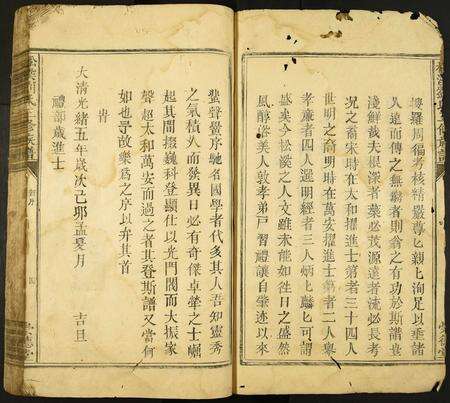 搜羅周徧考核精嚴尊匕親匕洵足以垂諸
久遠而傳之無窮者則翁之有功於斯譜良
淺鮮哉夫根深者葉必茂源遠者流必長考
況之裔宋時在太和擢進士第者三十四人
世明之裔明時在萬安擢進士第者二人舉
孝廉者四人選明經者三人炳匕麟匕可謂
盛矣今松溪之人文雖未能如徃日之盛然
風醇俗美人敦孝弟戸習禮讓自肇迹以來
蜚聲黌序馳名國學者代多其人吾知靈秀
之氣積久而發異日必有奇傑卓犖之士崛
起其間掇巍科登顯仕以光門閭而大振家
聲超太和萬安而過之者其登斯譜又當何
如也予故樂為之序以弁其首
旹
大清光緒五年歲次己卯孟夏月 吉旦
禮部歲進士